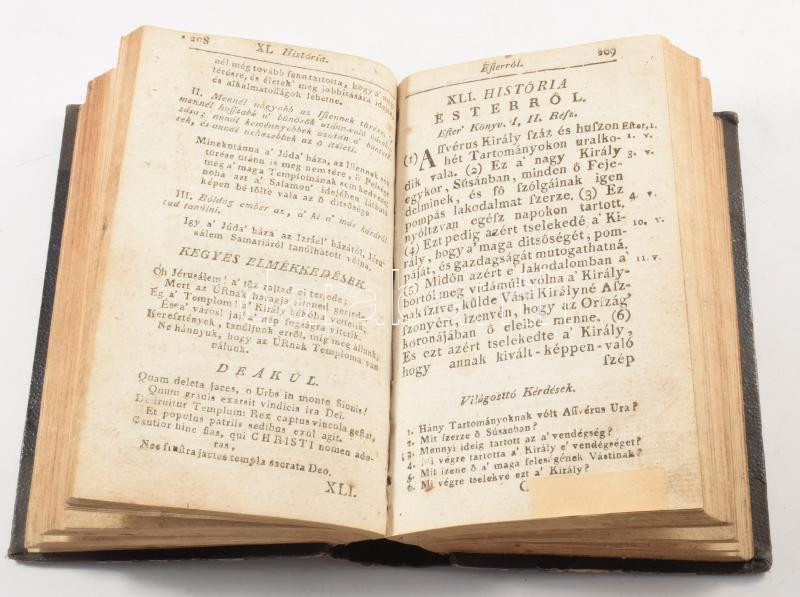 208 XL História.
nél még tovább fenn tartotta, hogy a' meg
térésre, és életek' meg jobbítására idejek,
és alkalmatosságok lehetne.
II. Mennél nagyobb az Istennek türése, s
mennél hosszabb a' bünösök utánn-való
zása; annál keménnyebbek azután a' büntetések,
sek, és annál nehezebbek az ö ítéleti.
Minekutánna a' Júda' háza, az Istennek sok
türése utánn is meg nem tére, ö Felsége
még a' maga Templomának sem kedveze,
noha azt a' Salamon' idejében látható
képen bé tölte vala az ö ditsösége.
III. Bóldog ember az, a' ki a' más' kárából
tud tanúlni.
Igy a' Júda' háza az Izráel' házától, Jéru'
sálem Samariáról tanúlhatott vólna.
KEGYES ELMÉKKEDÉSEK.
Óh Jérusálem! a' tüz rajtad el terjede;
Mert az ÚRnak haragja ellened gerjede.
Ég a' Templom! a' Király békóba vettetik,
Es e' város! jaj! a' nép fogságra vitetik.
Keresztények, tanúljunk erröl, míg meg állunk,
Ne hánnyuk, hogy az ÚRnak Temploma van
nálunk.
DEÁKÚL.
Quam deleta jaces, o Urbs in monte Sionis!
Quum grauis exarsit vindicis ira Dei.
Destruitur Templum: Rex captus vincula gestat,
Et populus patriis sedibus exul agit.
Cautior hinc fias, qui CHRISTI nomen ado-
ras,
Nec frustra jactes templa sacrata Deo.
XLI.
Esterröl. 209
XLI. HISTÓRIA
ESTERRÖL.
Ester' Könyv. I, II. Rész.
(1) Assvérus Király száz és huszon Ester, 1.
hét Tartományokon uralko- 1. v.
dik vala. (2) Ez a' nagy Király 3. v.
egykor, Súsánban, minden ö Feje-
delminek, és fö szólgáinak igen
pompás lakodalmat szerze. (3) Ez
nyóltzvan egész napokon tartott. 4. v.
(4) Ezt pedig azért tselekedé a' Ki-
rály, hogy a' maga ditsöségét, pom- 10. v.
páját, és gazdagságát mutogathatná.
(5) Midön azért e' lakodalomban a' 11. v.
bortól meg vidámúlt vólna a' Király-
nak szíve, külde Vásti Királyné Asz-
szonyért, izenvén, hogy az Ország'
koronájában ö eleibe menne. (6)
Es ezt azért tselekedte a' Király,
hogy annak kivált-képpen-való
szép
Világosttó Kérdések.
1. Hány Tartományoknak vólt Assvérus Ura?
2. Mit szerze ö Súsánban?
3. Mennyi ideig tartott az a' vendégség?
4. Mi végre tartotta a' Király e' vendégséget?
5. Mit izene ö a' maga feleségének Vástinak?
6. Mi végre tselekvé ezt a' Király?